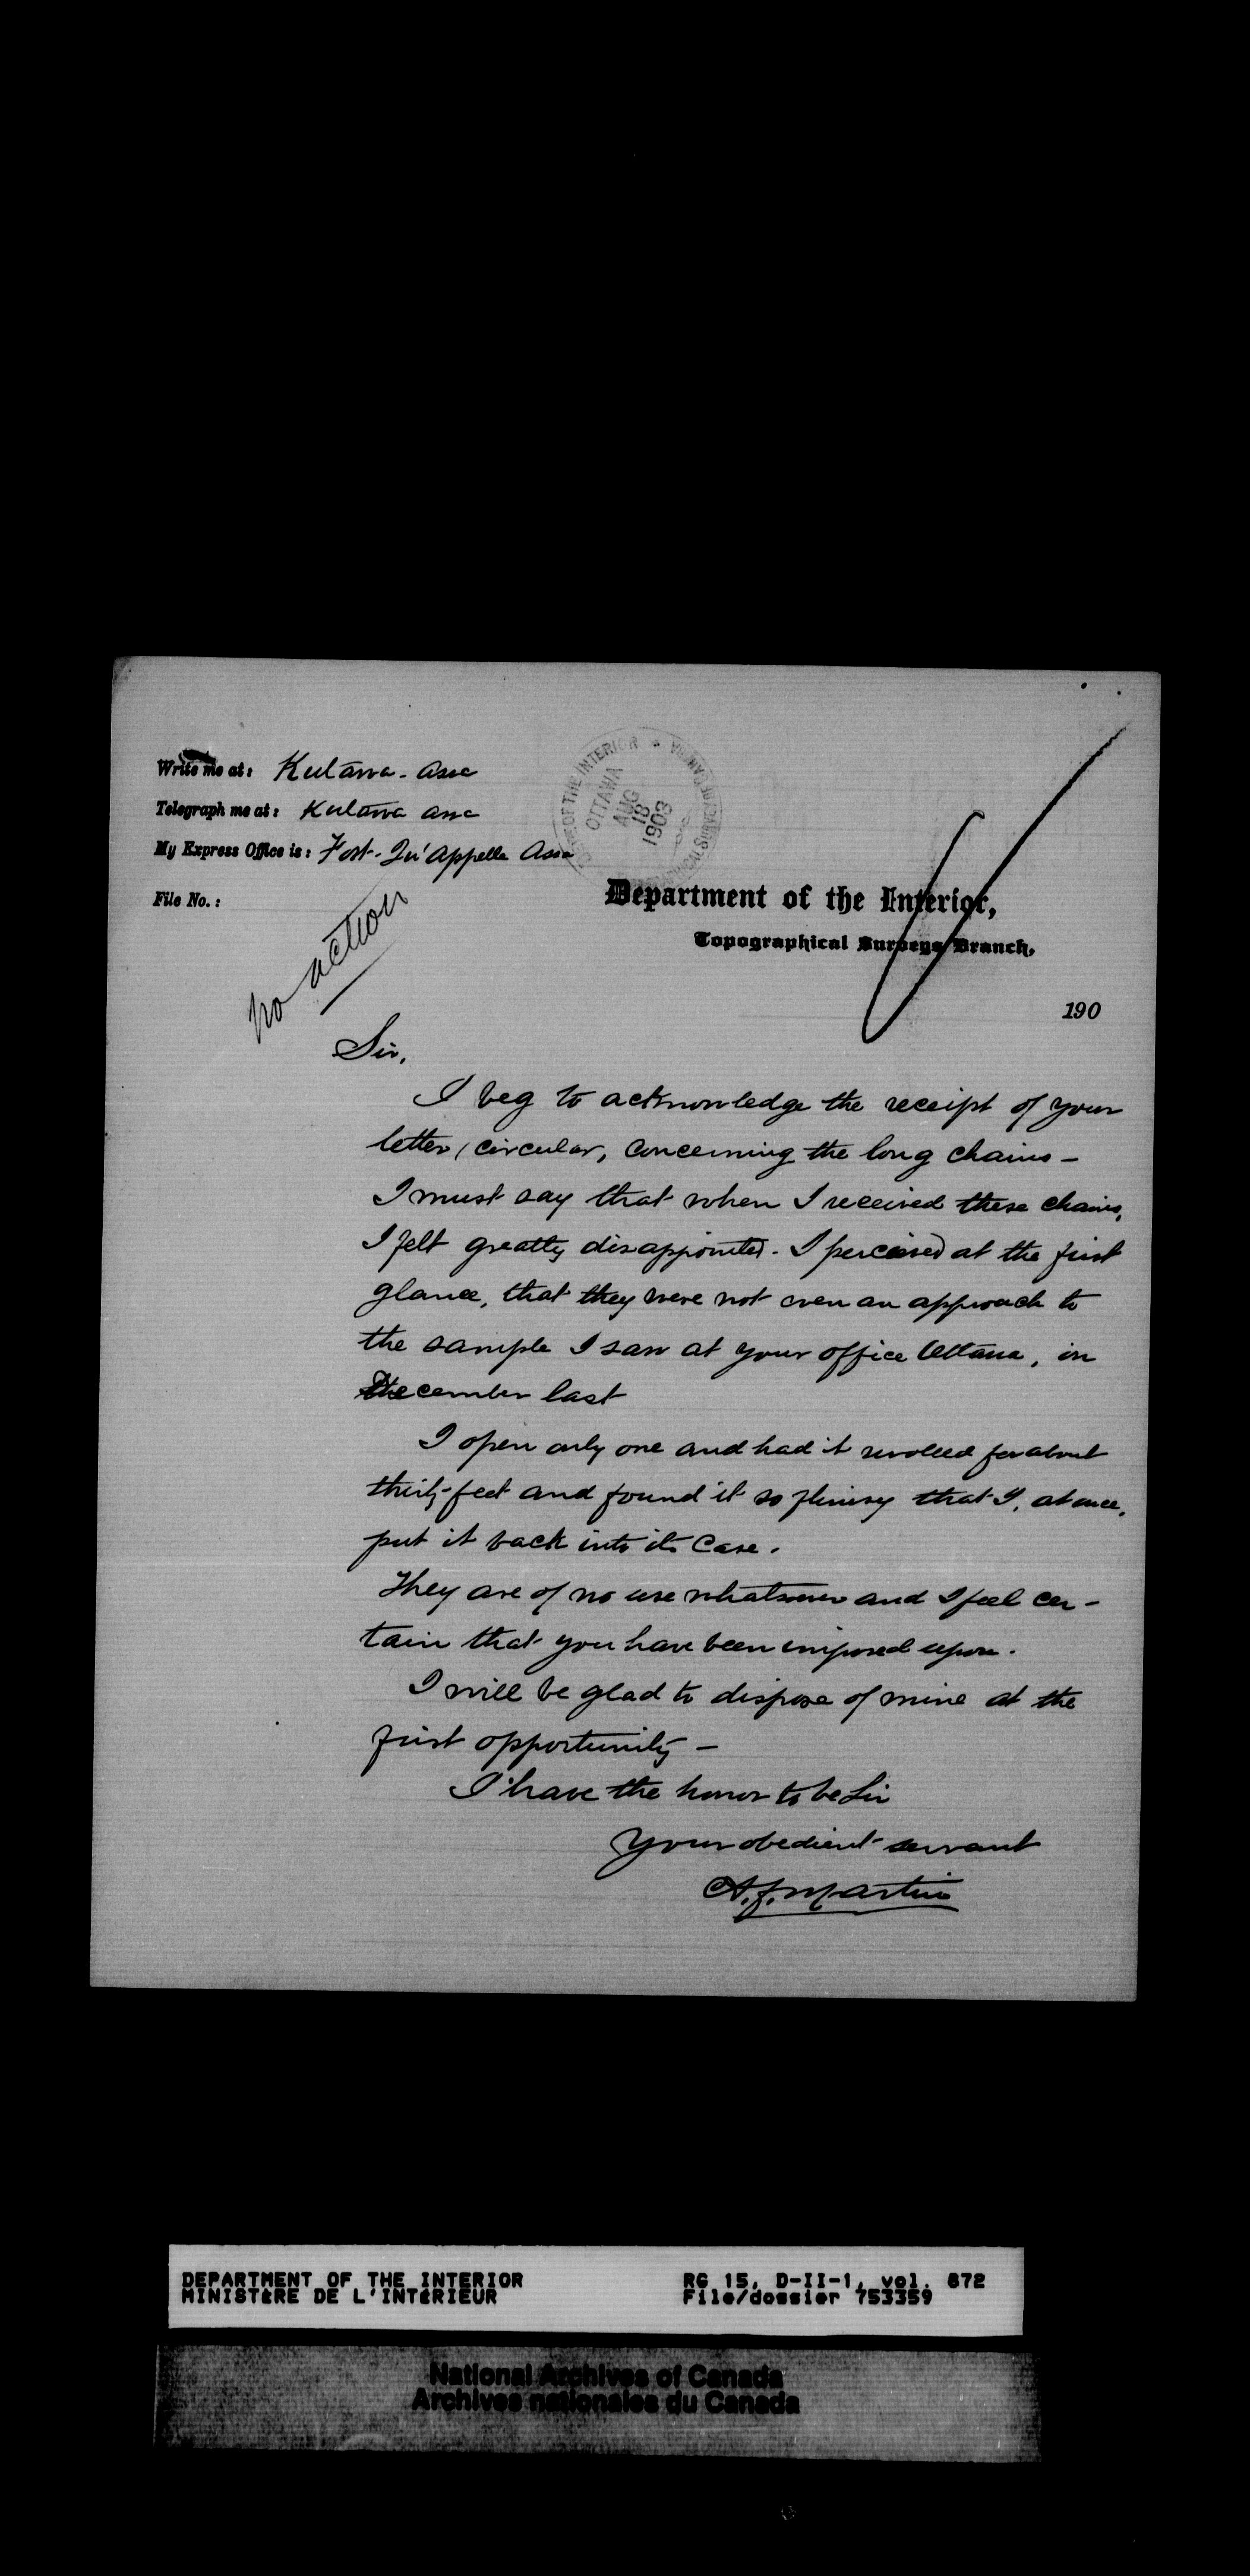 Write me at: Kutawa - Assa
Telegraph me at: Kutawa Assa
My Express Office is: Fort-Qu'Appelle Assa
File No.:
OF THE INTERIOR
OTTAWA
AUG
18
1903
no action
Department of the Interior,
Topographical Surveys Branch,
190
Sir,
I beg to acknowledge the receipt of your
letter, circular, concerning the long chains -
I must say that when I received these chains,
I felt greatly disappointed. I perceived at the first
glance, that they were not even an approach to
the sample I saw at your office Ottawa, in
December last
I open only one and had it unrolled for about
thirty-feet and found it so flimsy that I, at once,
put it back into its case.
They are of no use whatsoever and I feel cer-
tain that you have been imposed upon.
I will be glad to dispose of mine at the
first opportunity -
I have the honor to be Sir
Your obedient servant
A.F. Martin
DEPARTMENT OF THE INTERIOR
MINISTÈRE DE L'INTÉRIEUR
RG 15, D-II-1, vol. 872
File/dossier 753359
National Archives of Canada
Archives nationales du Canada